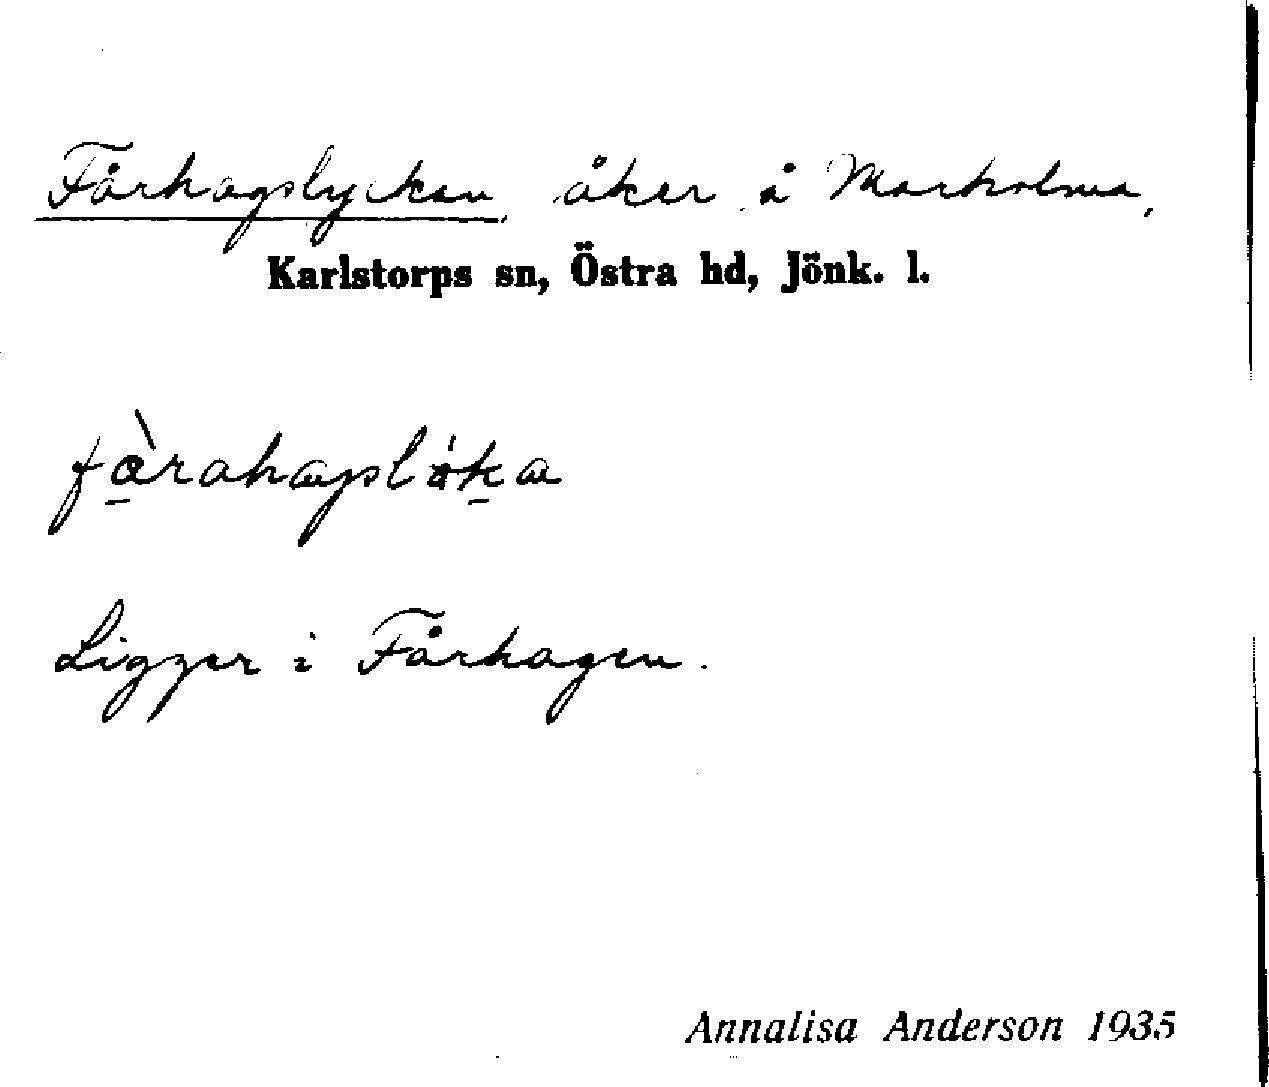 Fårhagslyckan, åker å Marholma,
Karlstorps sn, Östra hd, Jönk. l.
Ligger i Fårhagen.
Annalisa Anderson 1935